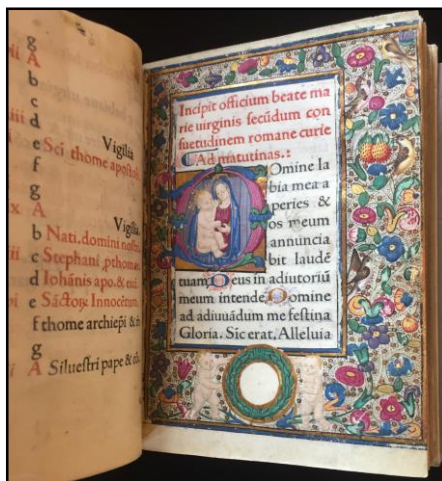 g
A
b
c
d Vigilia
e Sci thome
f
g
A
b Nati. domini
c Stephani
d Iohānis apo. & euā.
e Sāctoꝝ Innocētum.
f thome archiep̄i &
g
A Siluestri pape &
Incipit officium beate ma
rie uirginis secūdum con
suetudinem romane curie
Ad matutinas.:
DOmine la
bia mea a
peries &
os meum
annuncia
bit laudē
tuam. Deus in adiutoriū
meum intende. Domine
ad adiuuādum me festina
Gloria. Sic erat. Alleluia